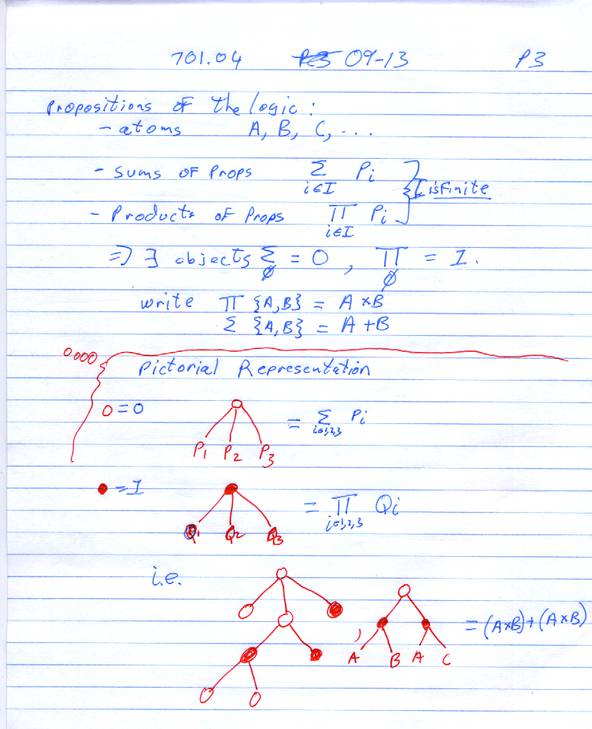 701.04 09-13 P3
Propositions of the logic:
- atoms A, B, C, ...
- sums of Props Σ i∈I Pi
- Products of Props Π i∈I Pi } I is finite
=> ∃ objects Σ ∅ = 0 , Π ∅ = I.
write Π {A,B} = A×B
Σ {A,B} = A+B
0.000
Pictorial Representation
O = 0
= Σ i=1,2,3 Pi
P1 P2 P3
● = I
= Π i=1,2,3 Qi
Q1 Q2 Q3
i.e.
, = (A×B)+(A×B)
A B A C